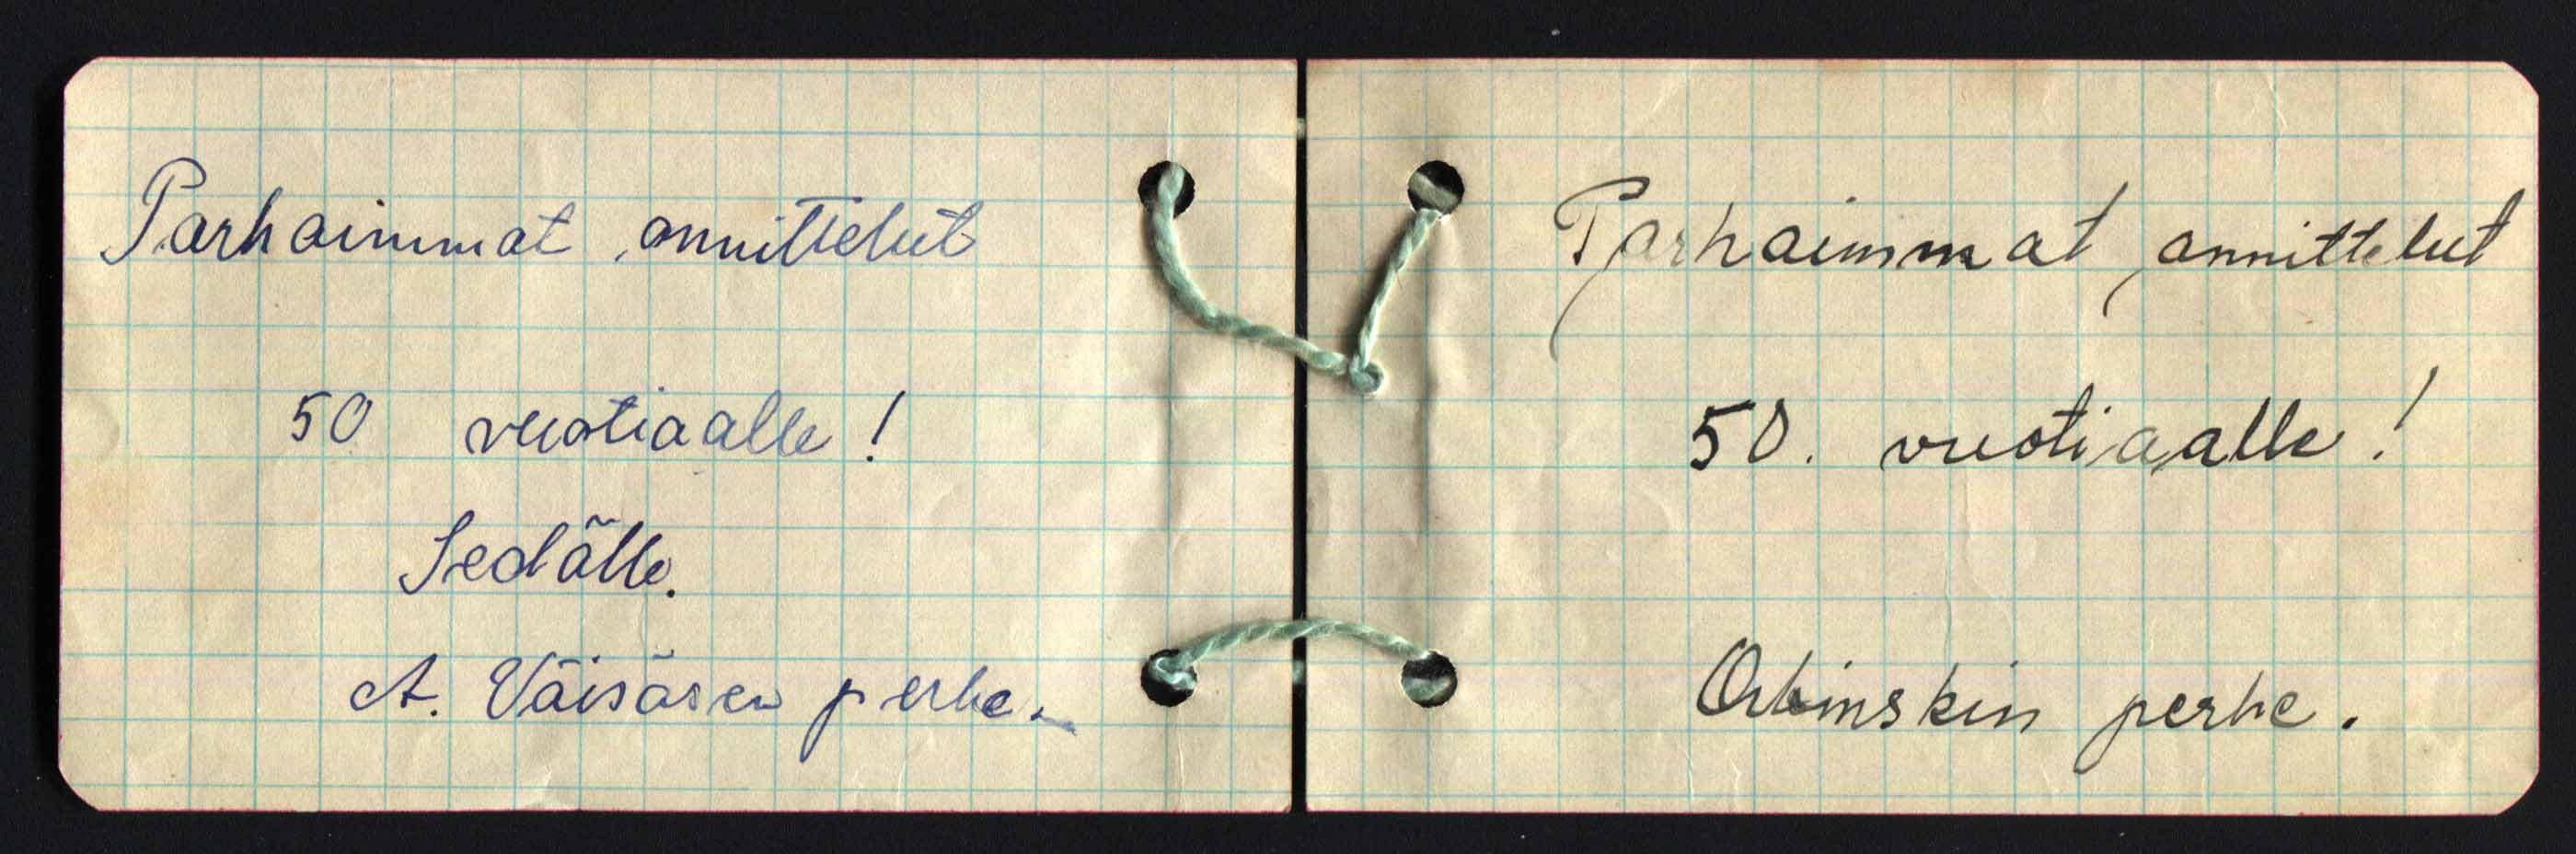 Parhaimmat onnittelut
50 vuotiaalle!
Sedälle.
A. Väisäsen perhe.
Parhaimmat onnittelut
50. vuotiaalle!
perhe.